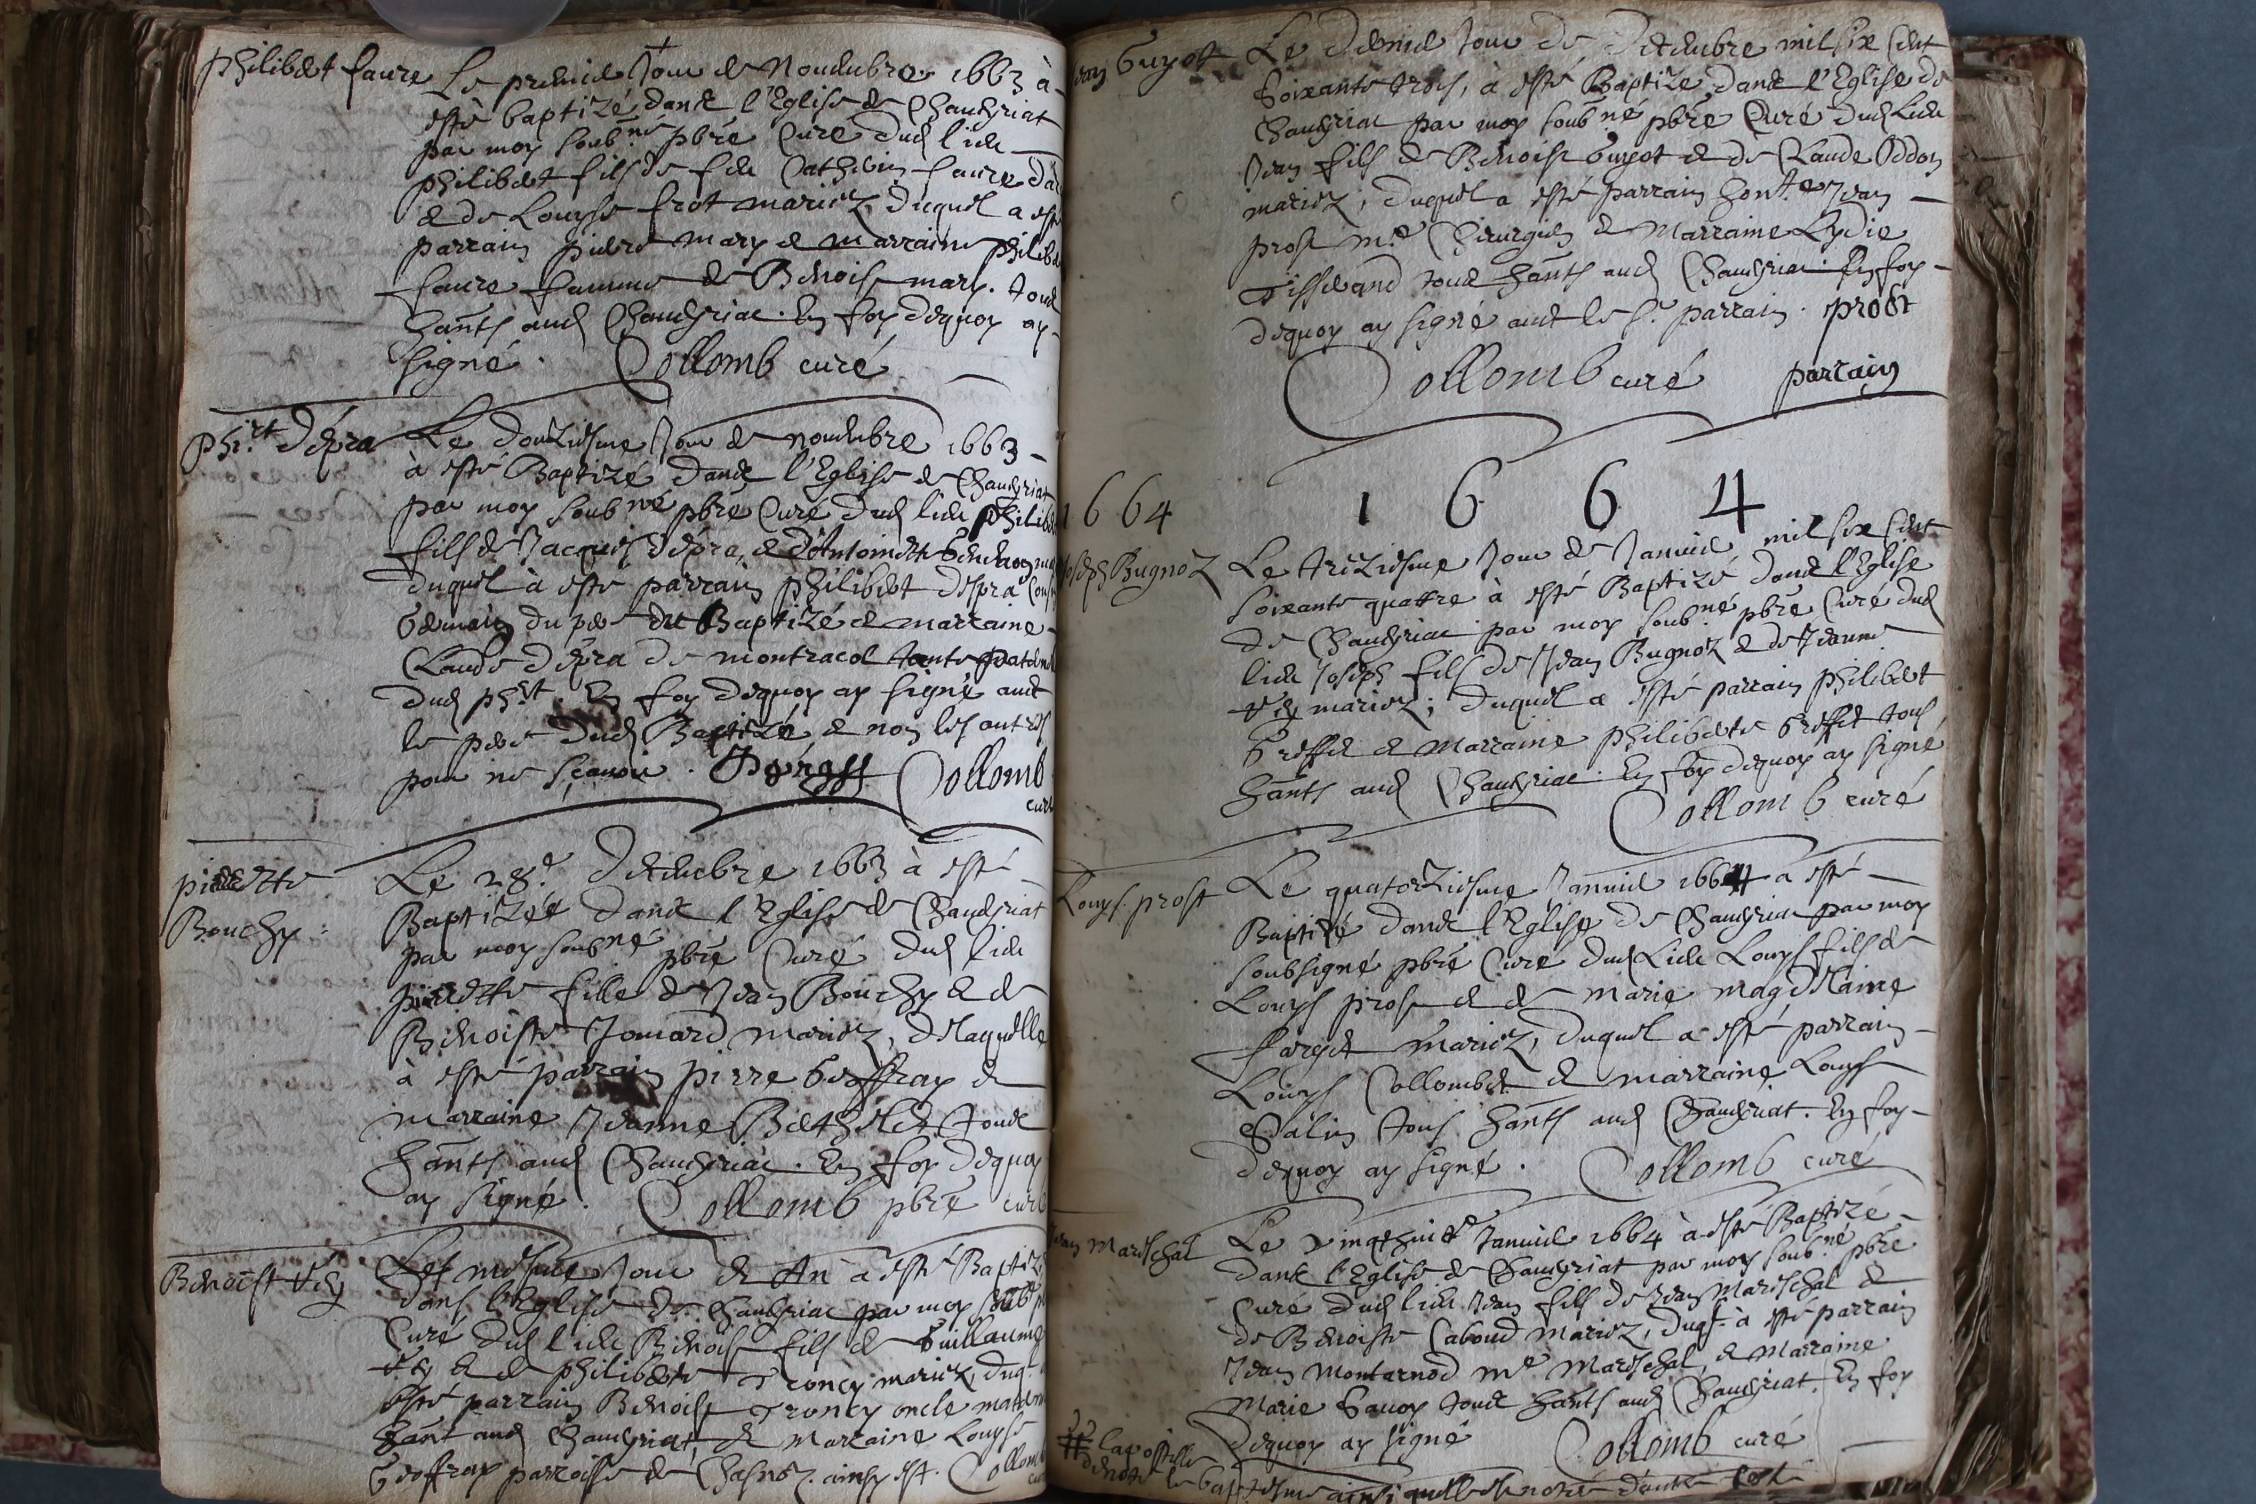 Philibert faure
Le premier Jour de Novembre 1663 à
esté baptizé dans l'Eglise de Chaveyriat
par moy soub.né pbre Curé dud lieu
philibert fils de feu Catherin faure
& de Louyse frot mariez, duquel a esté
parrain pierre mary & marraine philib
faure famme de Benoist mary. tous
hants aud Chaveyriac. En foy dequoy ay
signé. Collomb curé
Phi.rt Dépra
Le douziesme Jour de novembre 1663
à esté Baptizé dans l'Eglise de Chaveyriat
par moy soub.né pbre Curé dud lieu philib
fils de Jacques dépra, & d'Antoinette
duquel à esté parrain philibert depra
Germain du pere du Baptizé & marraine
Claude dépra de montracol tante
dud ph.rt En foy dequoy ay signé avec
le pere dud Baptizé & non les autres
pour ne sçavoir. Collomb
curé
pierrette
Bouchy:
Le 28.e Decembre 1663 à esté
Baptizée dans l'Eglise de Chaveyriat
par moy soub.né pbre Curé dud lieu
pierrette fille de Jean Bouchy & de
Benoiste Jomard mariez, de laquelle
à esté parrain pierre Geoffray &
marraine Jeanne Berthelet tous
hants aud Chaveyriac. En foy dequoy
ay signé. Collomb pbre curé
Benoist Vey
Les mesme Jour & An a esté Baptiz
dans l'Eglise de Chaveyriac par moy
Curé dud lieu Benoist fils de Guillaume
Vey & de philiberte Troncy mariez, duq.l
esté parrain Benoist Troncy oncle
hant aud Chaveyriat, & marraine Louyse
Geoffray parroisse de ainsy est. Collomb
Jean Guyot
Le dernier Jour de Decembre mil six cent
soixante trois, à esté Baptize dans l'Eglise de
Chaveyriac par moy soub.né pbre Curé dud Lieu
Jean fils de Benoist Guyot & de Claude Oddon
mariez, duquel a esté parrain hon.te Jean
prost m.e Chirurgien & Marraine Lydie
Tisserand tous hants aud Chaveyriac. En foy
dequoy ay signé avec le s.r parrain. prost
Collomb curé parrain
1664
1 6 6 4
Joseph Bugnoz
Le treziesme Jour de Janvier mil six cent
soixante quattre à esté Baptizé dans l'Eglise
de Chaveyriac par moy soub.né pbre Curé dud
lieu Joseph fils de Jean Bugnoz & de Jeanne
Vey mariez; duquel a esté parrain philibert
Greffet & Marraine philiberte Greffet tous
hants aud Chaveyriac. En foy dequoy ay signé
Collomb curé
Louys. prost
Le quatorziesme Janvier 1664 a esté
Baptizé dans l'Eglise de Chaveyriac par moy
soubsigné pbre Curé dud Lieu Louys fils de
Louys prost & de Marie Magdelaine
farget mariez, duquel a esté parrain
Louys Collombet & marraine Louyse
Salin tous hants aud Chaveyriat. En foy
dequoy ay signé. Collomb curé
Jean Mareschal
Le vingthuict.e Janvier 1664 à esté Baptizé
dans l'Eglise de Chaveyriat par moy soub.né pbre
Curé dud lieu Jean fils de Jean Mareschal &
de Benoiste Caboud mariez, duq.l à esté parrain
Jean Montarnod m.e Mareschal, & Marraine
Marie Gavoy tous hants aud Chaveyriat. En foy
dequoy ay signé Collomb curé